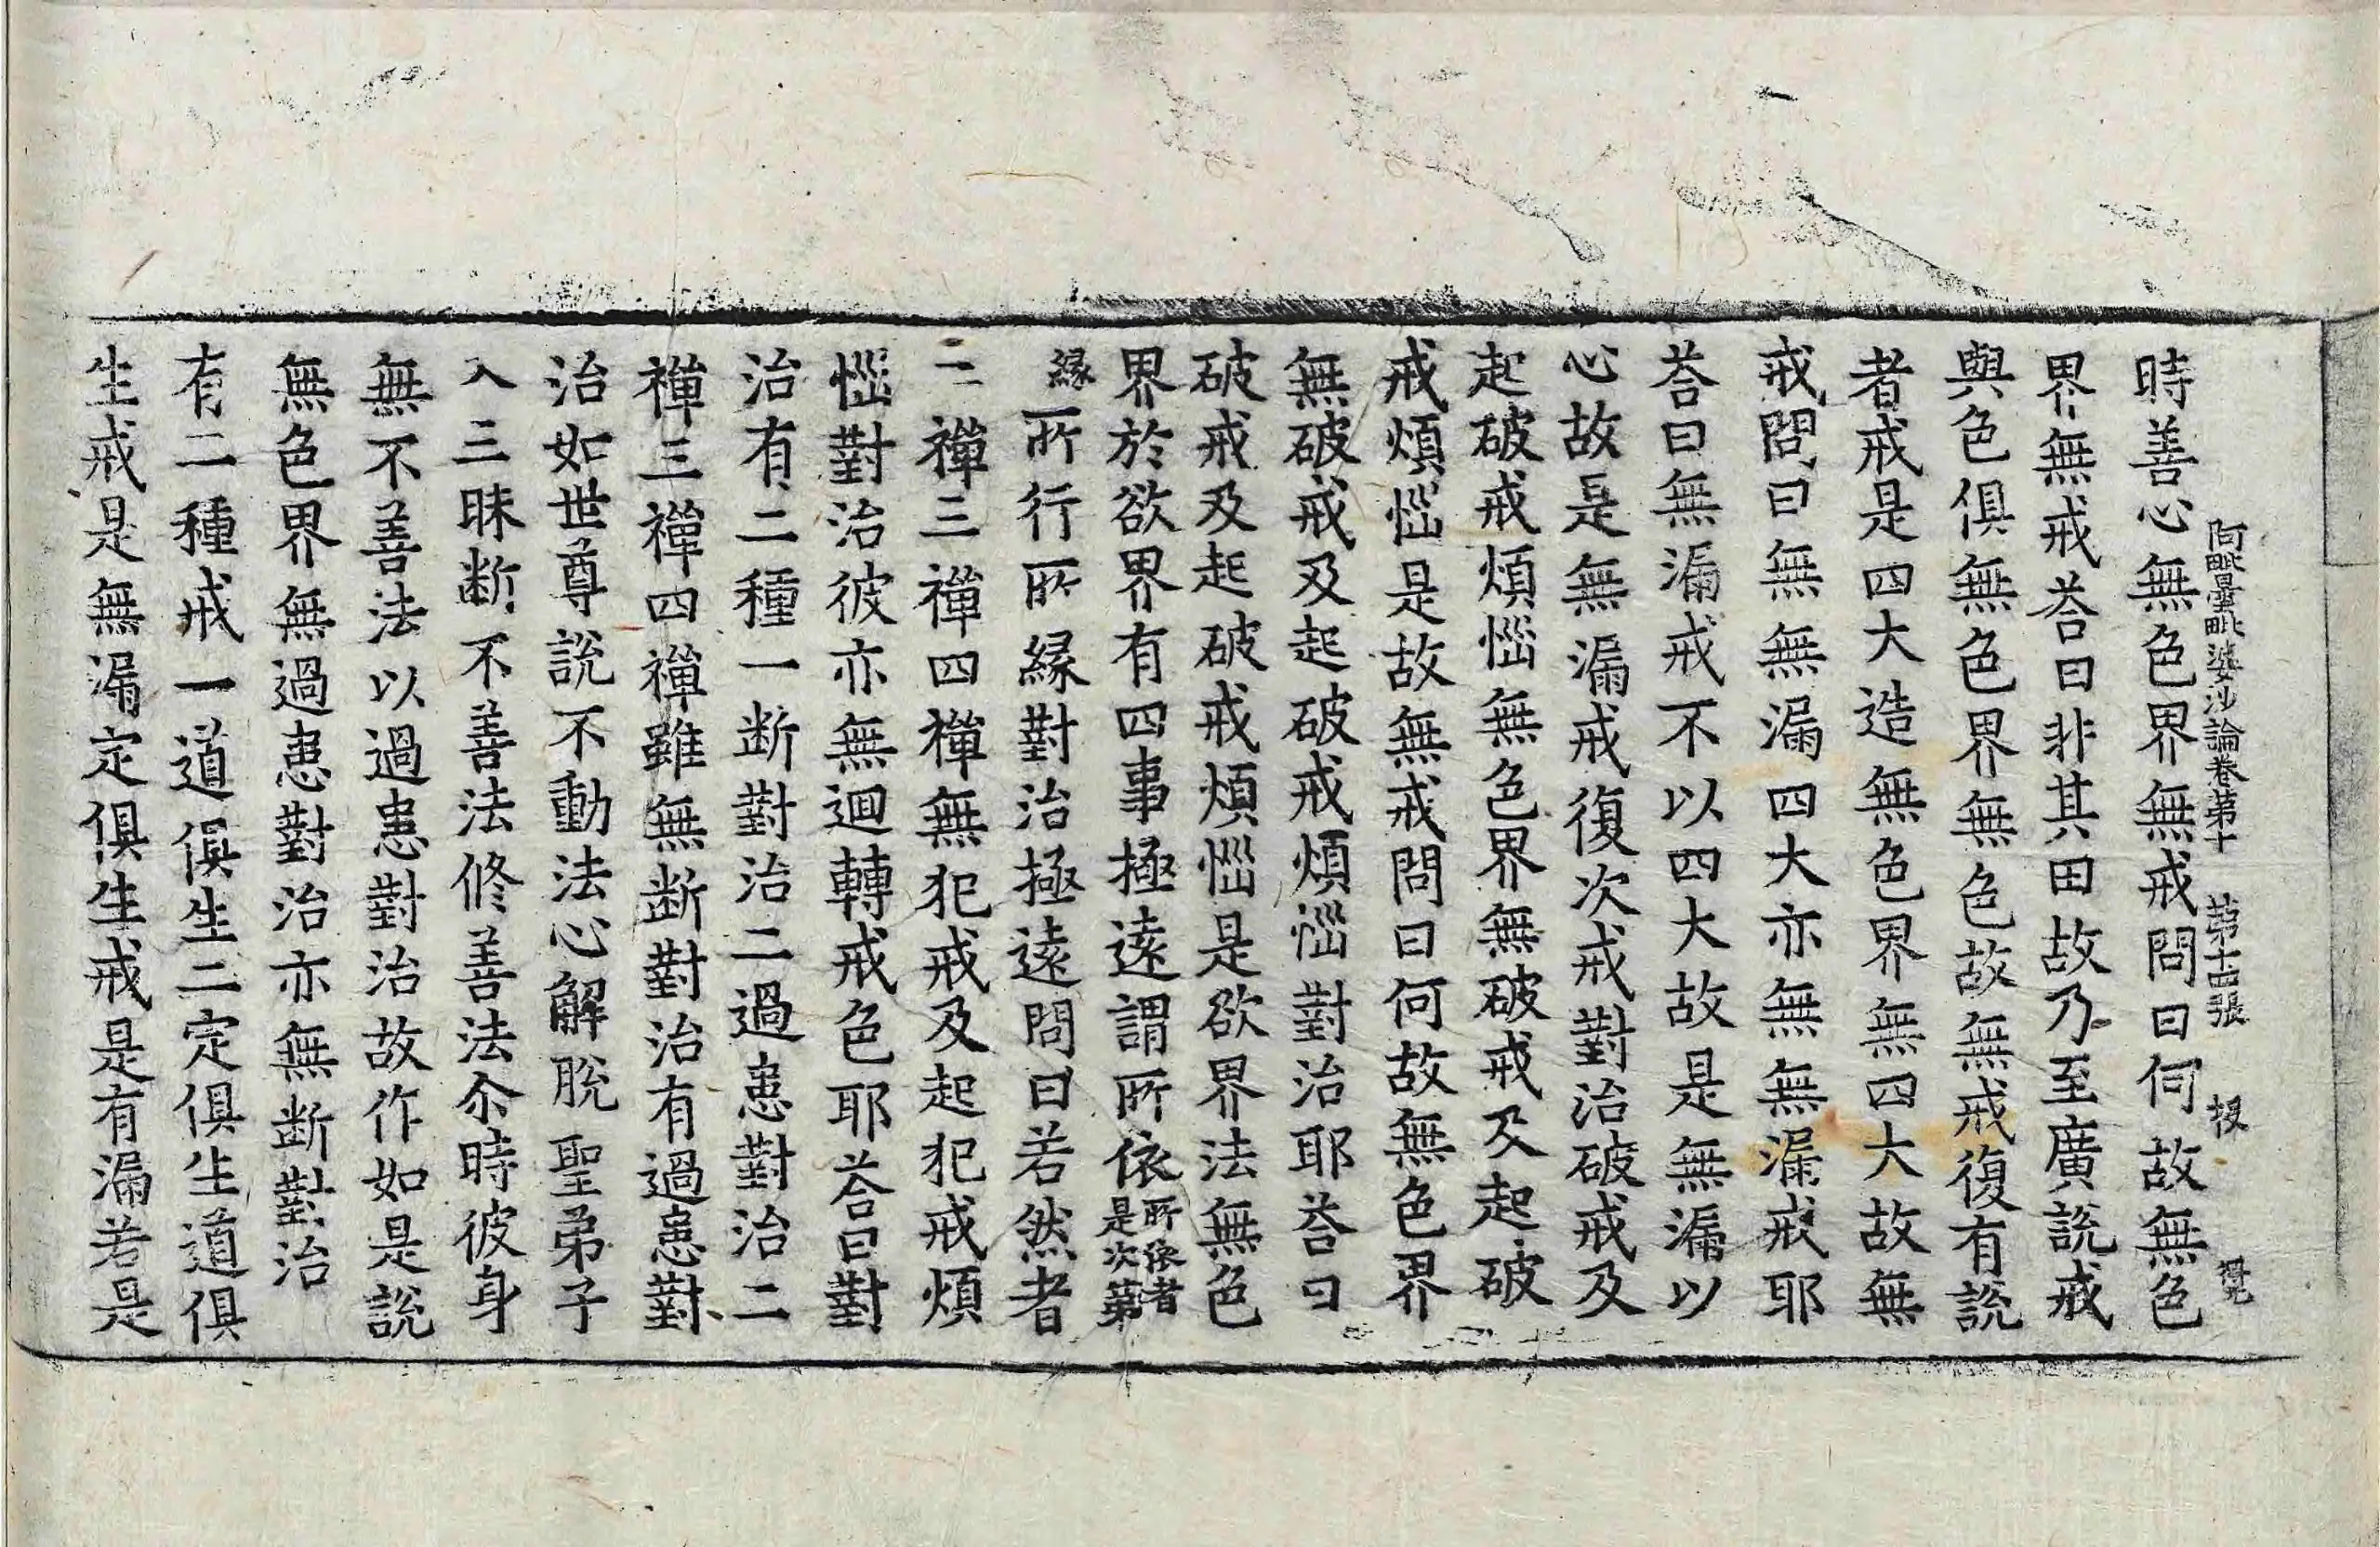 阿毗曇毗婆沙論卷第十 第十四張 堗
時善心無色界無戒問曰何故無色
界無戒荅曰非其田故乃至廣說戒
與色俱無色界無色故無戒復有說
者戒是四大造無色界無四大故無
戒問曰無無漏四大亦無無漏戒耶
荅曰無漏戒不以四大故是無漏以
心故是無漏戒復次戒對治破戒及
起破戒煩惱無色界無破戒及起破
戒煩惱是故無戒問曰何故無色界
無破戒及起破戒煩惱對治耶荅曰
破戒及起破戒煩惱是欲界法無色
界於欲界有四事極遠謂所依所依者是次第
緣所行所緣對治極遠問曰若然者
二禪三禪四禪無犯戒及起犯戒煩
惱對治彼亦無迴轉戒色耶荅曰對
治有二種一断對治二過患對治二
禪三禪四禪雖無断對治有過患對
治如世尊說不動法心解脫聖弟子
入三昧断不善法修善法尒時彼身
無不善法以過患對治故作如是說
無色界無過患對治亦無断對治
有二種戒一道俱生二定俱生道俱
生戒是無漏定俱生戒是有漏若是